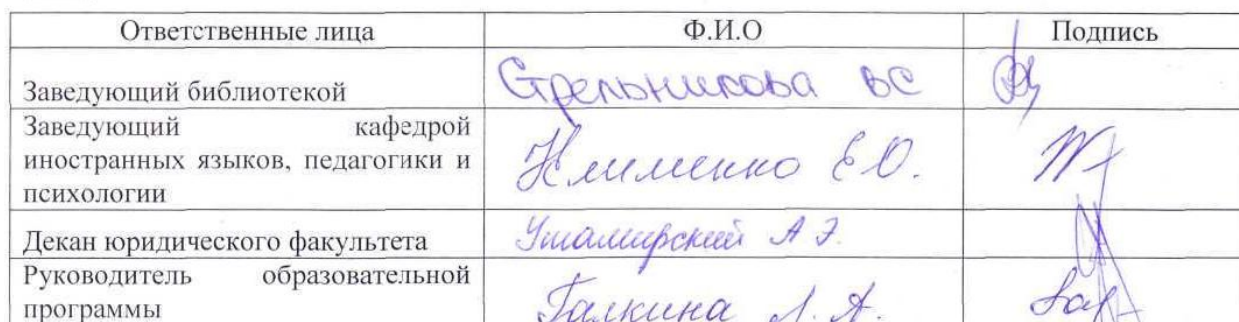 Ответственные лица Ф.И.О Подпись
Заведующий библиотекой Стрельникова ВС
Заведующий кафедрой
иностранных языков, педагогики и
психологии
Клименко Е.О.
Декан юридического факультета А Э.
Руководитель образовательной
программы
Галкина Л. А.